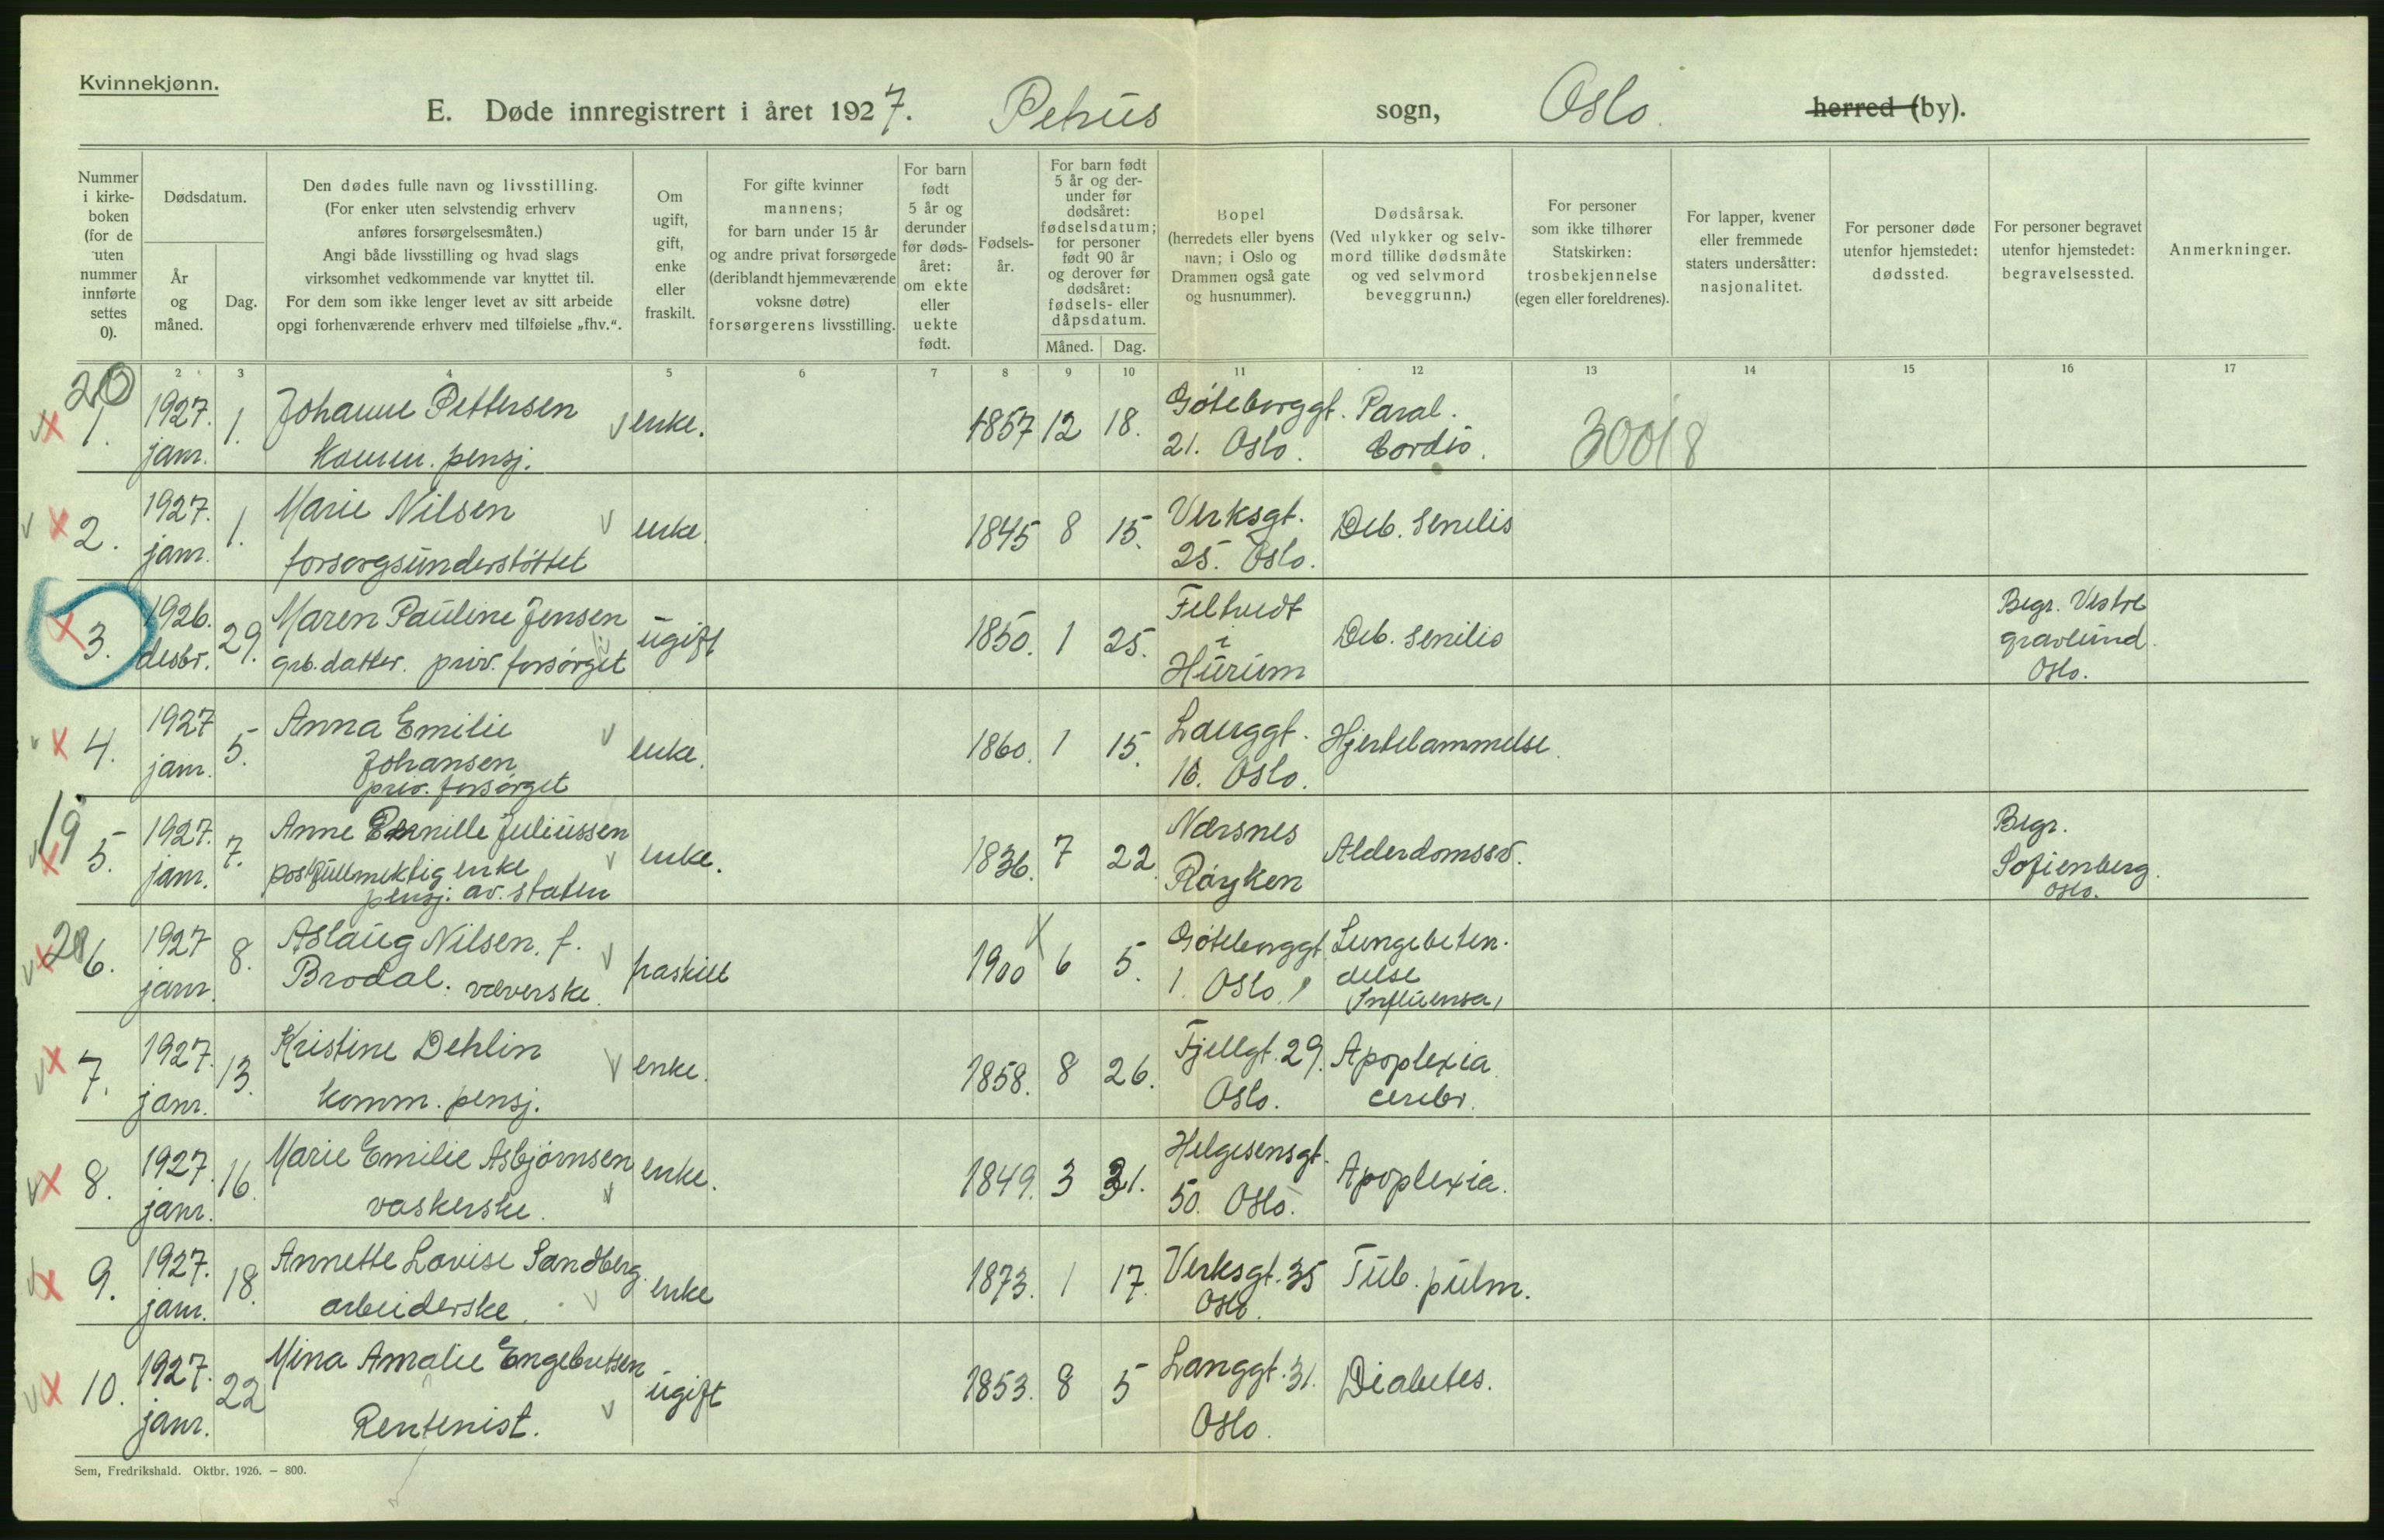 Kvinnekjønn.
E. Døde innregistrert i året 1927. Petrus sogn, Oslo. herred (by).
Nummer i kirke-boken (for de uten nummer innførte settes 0).
Dødsdatum.
År og måned.
Dag.
Den dødes fulle navn og livsstilling.
(For enker uten selvstendig erhverv
anføres forsørgelsesmåten.)
Angi både livsstilling og hvad slags
virksomhet vedkommende var knyttet til.
For dem som ikke lenger levet av sitt arbeide
opgi forhenværende erhverv med tilføielse „fhv.“.
Om
ugift,
gift,
enke
eller
fraskilt.
For gifte kvinner
mannens;
for barn under 15 år
og andre privat forsørgede
(deriblandt hjemmeværende
voksne døtre)
forsørgerens livsstilling.
For barn
født
5 år og
derunder
før døds-
året:
om ekte
eller
uekte
født.
Fødsels-
år.
For barn født
5 år og der-
under før
dødsåret:
fødselsdatum;
for personer
født 90 år
og derover før
dødsåret:
fødsels- eller
dåpsdatum.
Måned. Dag.
Bopel
(herredets eller byens
navn; i Oslo og
Drammen også gate
og husnummer).
Dødsårsak.
(Ved ulykker og selv-
mord tillike dødsmåte
og ved selvmord
beveggrunn.)
For personer
som ikke tilhører
Statskirken:
trosbekjennelse
(egen eller foreldrenes).
For lapper, kvener
eller fremmede
staters undersåtter:
nasjonalitet.
For personer døde
utenfor hjemstedet:
dødssted.
For personer begravet
utenfor hjemstedet:
begravelsessted.
Anmerkninger.
2 3 4 5 6 7 8 9 10 11 12 13 14 15 16 17
20
1. 1927. janr. 1. Johanne Pettersen enke. 1857 12 18. Göteborggt. Paral.
Komm. pensj. 21. Oslo. Cordis. 30018
2. 1927. janr. 1. Marie Nilsen enke. 1845 8 15. Verksgt. Deb. senilis
forsorgsunderstøttet 25. Oslo.
3. 1926. desbr. 29. Maren Pauline Jensen ugift 1850. 1 25. Feltvedt Deb. senilis Begr. Vestre
grb. datter. priv. forsørget i gravlund.
Hurum Oslo.
4. 1927 janr. 5. Anna Emilie enke. 1860. 1 15. Langgt. Hjertelammelse.
Johansen 16. Oslo.
priv. forsørget
19
5. 1927. janr. 7. Anne Pernille Juliussen enke. 1836. 7 22. Nærsnes Alderdomssv. Begr.
postfullmektig enke Røyken Sofienberg.
pensj. av. staten Oslo.
20
6. 1927 janr. 8. Aslaug Nilsen. f. fraskilt 1900 6 5. Göteborggt Lungebeten-
Brodal. væverske. 1. Oslo. delse
(Influensa)
7. 1927. janr. 13. Kristine Dehlin enke. 1858. 8 26. Fjellgt. 29. Apoplexia
komm. pensj. Oslo. cerebr.
8. 1927. janr. 16. Marie Emilie Asbjørnsen enke. 1849. 3 31. Helgesensgt. Apoplexia.
vaskerske. 50. Oslo.
9. 1927. janr. 18. Annette Lovise Sandberg. enke 1873. 1 17. Verksgt. 35 Tub. pulm.
arbeiderske. Oslo.
10. 1927. janr. 22 Mina Amalie Engebretsen ugift 1853. 8 5 Langgt. 31. Diabetes.
Rentenist. Oslo.
Sem, Fredrikshald. Oktbr. 1926. — 800.